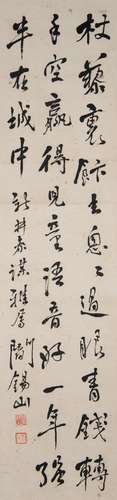 杖藜裹飯去匆匆過眼青錢轉
手空贏得兒童語音好一年強
半在城中 新井參謀雅屬 閻錫山